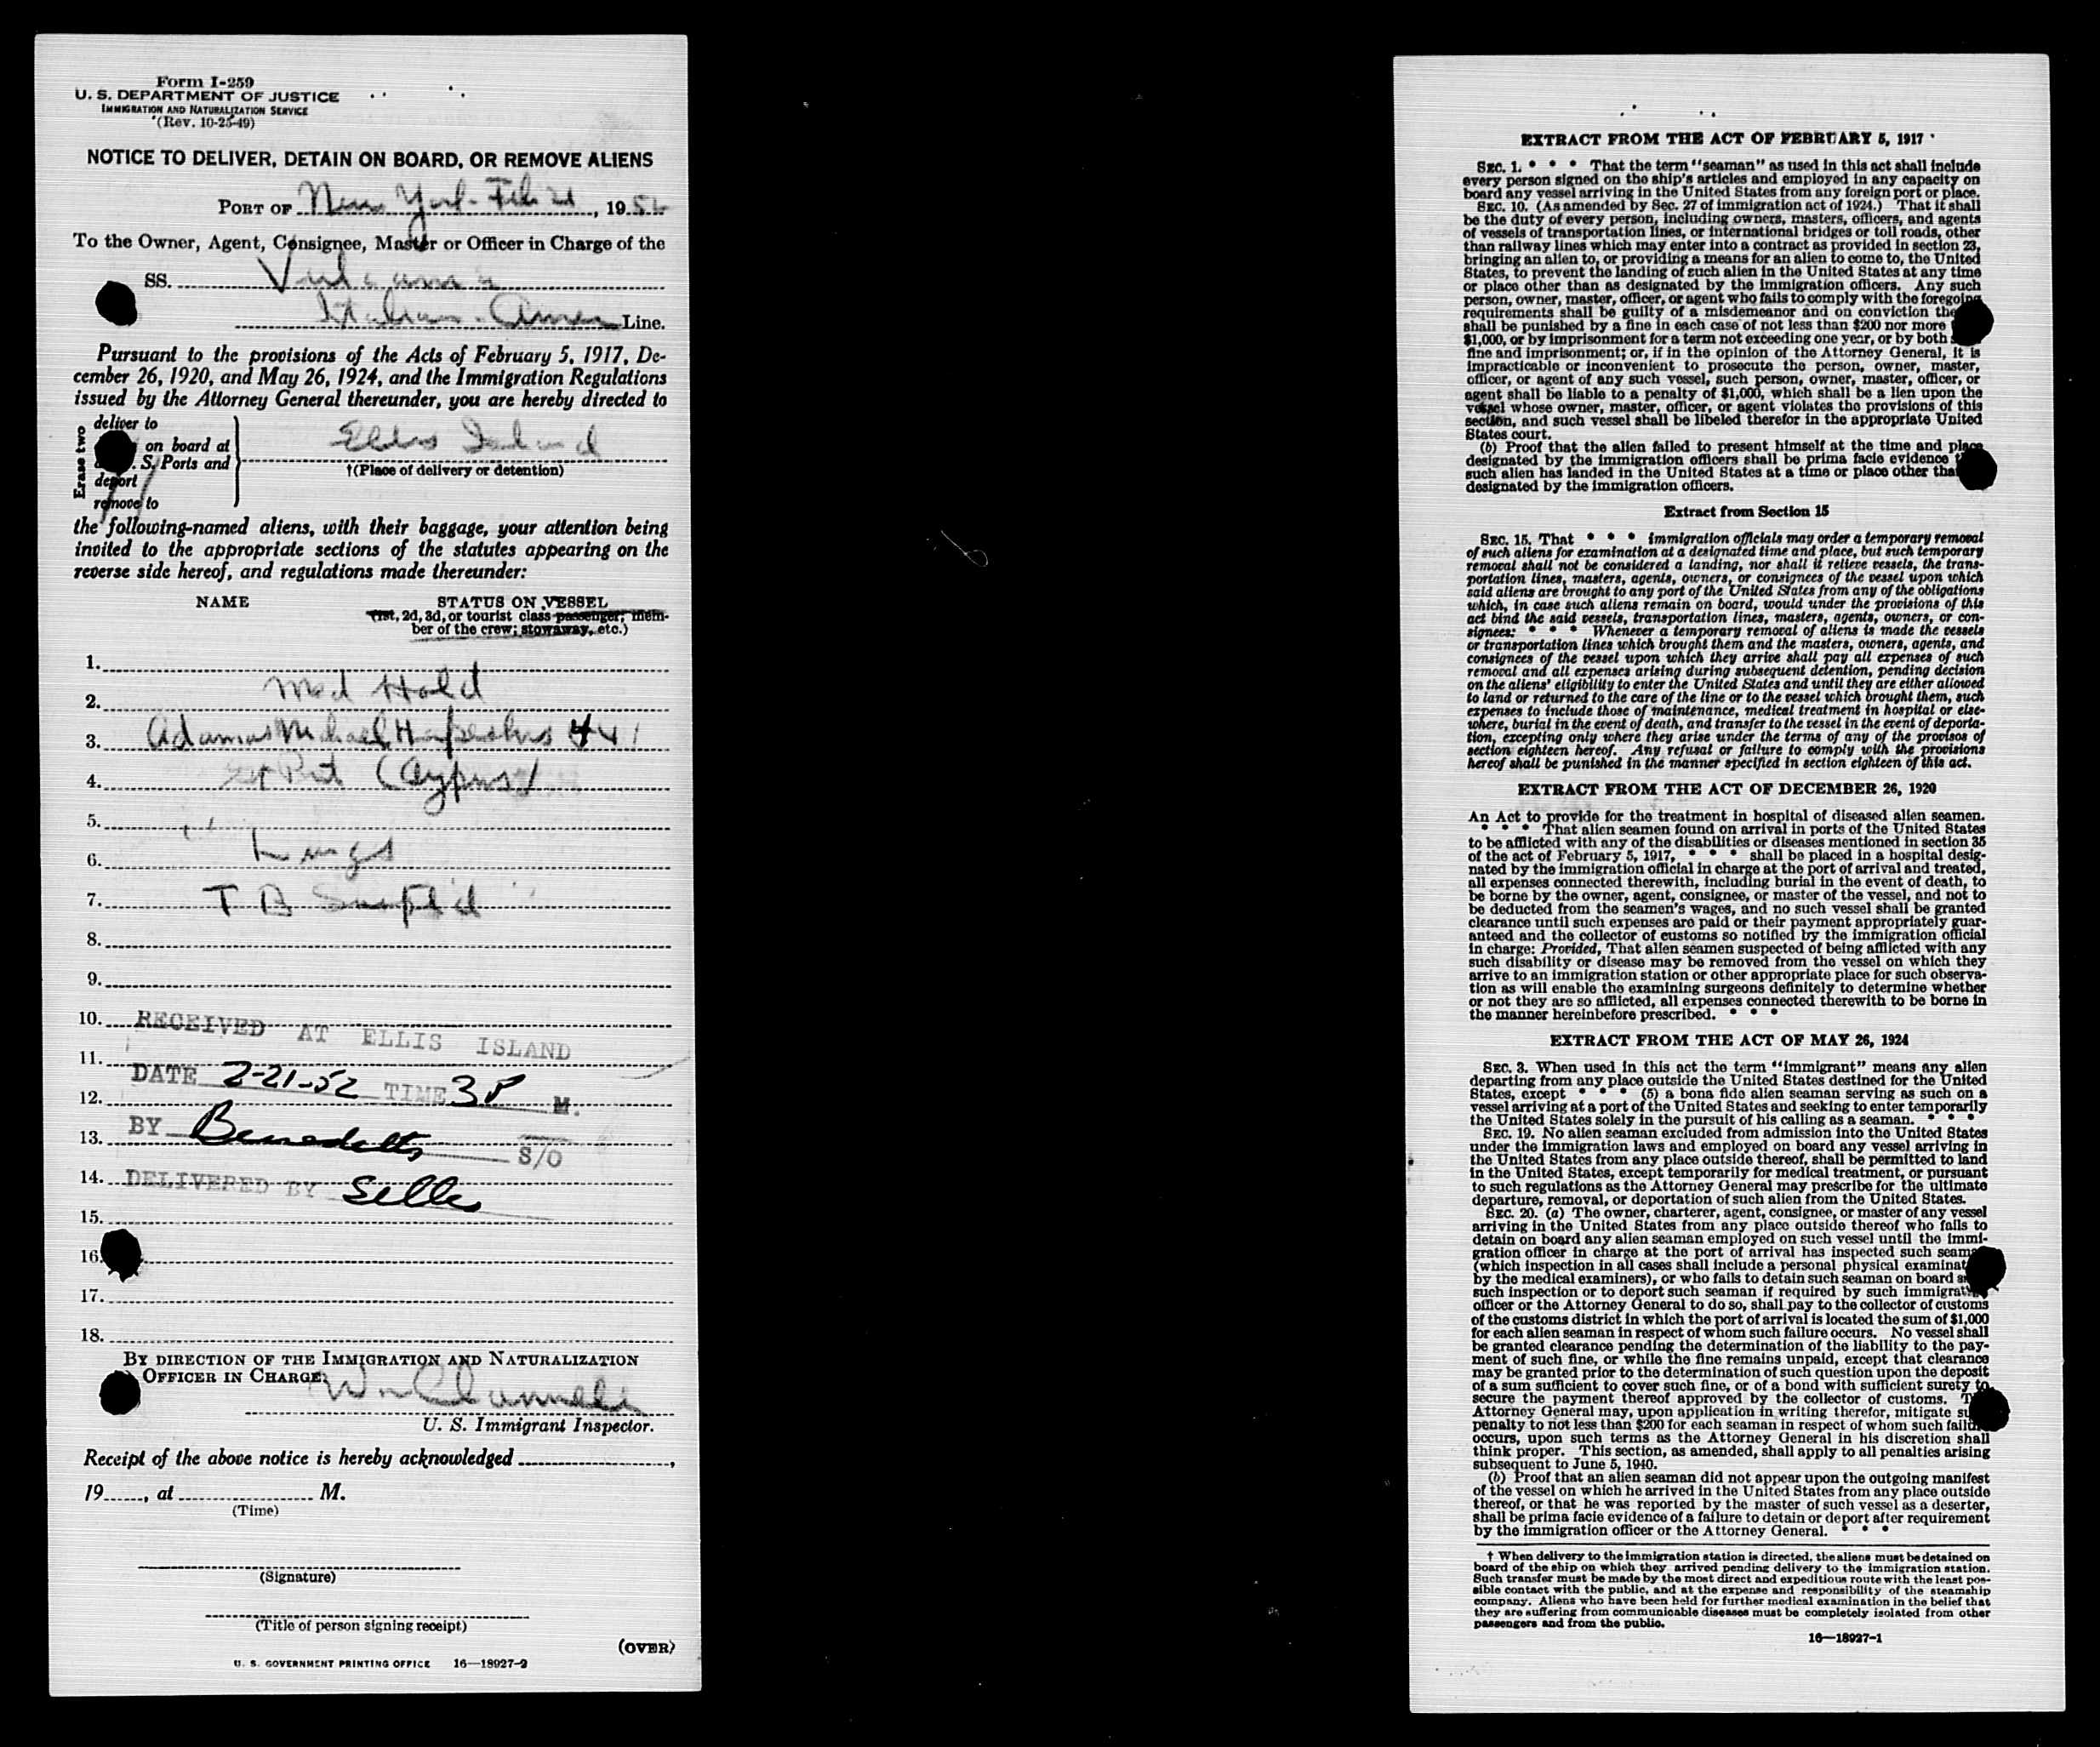 Form I-259
U. S. DEPARTMENT OF JUSTICE
IMMIGRATION AND NATURALIZATION SERVICE
(Rev. 10-25-49)
NOTICE TO DELIVER, DETAIN ON BOARD, OR REMOVE ALIENS
PORT OF New York Feb 21, 1952
To the Owner, Agent, Consignee, Master or Officer in Charge of the
SS. Vulcania
Italian-Amer Line.
Pursuant to the provisions of the Acts of February 5, 1917, De-
cember 26, 1920, and May 26, 1924, and the Immigration Regulations
issued by the Attorney General thereunder, you are hereby directed to
Erase two
deliver to
on board at
S. Ports and
deport
remove to
Ellis Island
†(Place of delivery or detention)
the following-named aliens, with their baggage, your attention being
invited to the appropriate sections of the statutes appearing on the
reverse side hereof, and regulations made thereunder:
NAME STATUS ON VESSEL
(1st, 2d, 3d, or tourist class passenger; mem-
ber of the crew; stowaway, etc.)
1.
2. Med Hold
3. Adamos Michael 441
4. (Cyprus)
5.
6. Lungs
7. T B
8.
9.
10. RECEIVED AT ELLIS ISLAND
11.
DATE 2-21-52 TIME 3 P M.
12.
BY Benedetto S/O
13.
14. DELIVERED BY Selle
15.
16.
17.
18.
BY DIRECTION OF THE IMMIGRATION AND NATURALIZATION
OFFICER IN CHARGE:
U. S. Immigrant Inspector.
Receipt of the above notice is hereby acknowledged
19, at M.
(Time)
(Signature)
(Title of person signing receipt)
(OVER)
U. S. GOVERNMENT PRINTING OFFICE 16—18927-2
EXTRACT FROM THE ACT OF FEBRUARY 5, 1917
SEC. 1. * * * That the term "seaman" as used in this act shall include
every person signed on the ship's articles and employed in any capacity on
board any vessel arriving in the United States from any foreign port or place.
SEC. 10. (As amended by Sec. 27 of immigration act of 1924.) That it shall
be the duty of every person, including owners, masters, officers, and agents
of vessels of transportation lines, or international bridges or toll roads, other
than railway lines which may enter into a contract as provided in section 23,
bringing an alien to, or providing a means for an alien to come to, the United
States, to prevent the landing of such alien in the United States at any time
or place other than as designated by the immigration officers. Any such
person, owner, master, officer, or agent who fails to comply with the foregoing
requirements shall be guilty of a misdemeanor and on conviction the
shall be punished by a fine in each case of not less than $200 nor more
$1,000, or by imprisonment for a term not exceeding one year, or by both
fine and imprisonment; or, if in the opinion of the Attorney General, it is
impracticable or inconvenient to prosecute the person, owner, master,
officer, or agent of any such vessel, such person, owner, master, officer, or
agent shall be liable to a penalty of $1,000, which shall be a lien upon the
vessel whose owner, master, officer, or agent violates the provisions of this
section, and such vessel shall be libeled therefor in the appropriate United
States court.
(b) Proof that the alien failed to present himself at the time and place
designated by the immigration officers shall be prima facie evidence
such alien has landed in the United States at a time or place other tha
designated by the immigration officers.
Extract from Section 15
SEC. 15. That * * * immigration officials may order a temporary removal
of such aliens for examination at a designated time and place, but such temporary
removal shall not be considered a landing, nor shall it relieve vessels, the trans-
portation lines, masters, agents, owners, or consignees of the vessel upon which
said aliens are brought to any port of the United States from any of the obligations
which, in case such aliens remain on board, would under the provisions of this
act bind the said vessels, transportation lines, masters, agents, owners, or con-
signees: * * * Whenever a temporary removal of aliens is made the vessels
or transportation lines which brought them and the masters, owners, agents, and
consignees of the vessel upon which they arrive shall pay all expenses of such
removal and all expenses arising during subsequent detention, pending decision
on the aliens' eligibility to enter the United States and until they are either allowed
to land or returned to the care of the line or to the vessel which brought them, such
expenses to include those of maintenance, medical treatment in hospital or else-
where, burial in the event of death, and transfer to the vessel in the event of deporta-
tion, excepting only where they arise under the terms of any of the provisos of
section eighteen hereof. Any refusal or failure to comply with the provisions
hereof shall be punished in the manner specified in section eighteen of this act.
EXTRACT FROM THE ACT OF DECEMBER 26, 1920
An Act to provide for the treatment in hospital of diseased alien seamen.
* * * That alien seamen found on arrival in ports of the United States
to be afflicted with any of the disabilities or diseases mentioned in section 35
of the act of February 5, 1917, * * * shall be placed in a hospital desig-
nated by the immigration official in charge at the port of arrival and treated,
all expenses connected therewith, including burial in the event of death, to
be borne by the owner, agent, consignee, or master of the vessel, and not to
be deducted from the seamen's wages, and no such vessel shall be granted
clearance until such expenses are paid or their payment appropriately guar-
anteed and the collector of customs so notified by the immigration official
in charge: Provided, That alien seamen suspected of being afflicted with any
such disability or disease may be removed from the vessel on which they
arrive to an immigration station or other appropriate place for such observa-
tion as will enable the examining surgeons definitely to determine whether
or not they are so afflicted, all expenses connected therewith to be borne in
the manner hereinbefore prescribed. * * *
EXTRACT FROM THE ACT OF MAY 26, 1924
SEC. 3. When used in this act the term "immigrant" means any alien
departing from any place outside the United States destined for the United
States, except * * * (5) a bona fide alien seaman serving as such on a
vessel arriving at a port of the United States and seeking to enter temporarily
the United States solely in the pursuit of his calling as a seaman. * * *
SEC. 19. No alien seaman excluded from admission into the United States
under the immigration laws and employed on board any vessel arriving in
the United States from any place outside thereof, shall be permitted to land
in the United States, except temporarily for medical treatment, or pursuant
to such regulations as the Attorney General may prescribe for the ultimate
departure, removal, or deportation of such alien from the United States.
SEC. 20. (a) The owner, charterer, agent, consignee, or master of any vessel
arriving in the United States from any place outside thereof who fails to
detain on board any alien seaman employed on such vessel until the immi-
gration officer in charge at the port of arrival has inspected such seam
(which inspection in all cases shall include a personal physical examinat
by the medical examiners), or who fails to detain such seaman on board
such inspection or to deport such seaman if required by such immigrat
officer or the Attorney General to do so, shall pay to the collector of customs
of the customs district in which the port of arrival is located the sum of $1,000
for each alien seaman in respect of whom such failure occurs. No vessel shall
be granted clearance pending the determination of the liability to the pay-
ment of such fine, or while the fine remains unpaid, except that clearance
may be granted prior to the determination of such question upon the deposit
of a sum sufficient to cover such fine, or of a bond with sufficient surety to
secure the payment thereof approved by the collector of customs. T
Attorney General may, upon application in writing therefor, mitigate su
penalty to not less than $200 for each seaman in respect of whom such failu
occurs, upon such terms as the Attorney General in his discretion shall
think proper. This section, as amended, shall apply to all penalties arising
subsequent to June 5, 1940.
(b) Proof that an alien seaman did not appear upon the outgoing manifest
of the vessel on which he arrived in the United States from any place outside
thereof, or that he was reported by the master of such vessel as a deserter,
shall be prima facie evidence of a failure to detain or deport after requirement
by the immigration officer or the Attorney General. * * *
† When delivery to the immigration station is directed, the aliens must be detained on
board of the ship on which they arrived pending delivery to the immigration station.
Such transfer must be made by the most direct and expeditious route with the least pos-
sible contact with the public, and at the expense and responsibility of the steamship
company. Aliens who have been held for further medical examination in the belief that
they are suffering from communicable diseases must be completely isolated from other
passengers and from the public.
16—18927-1